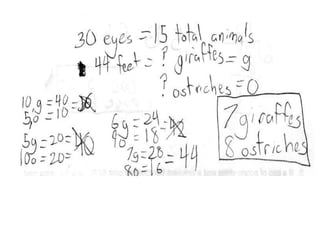 30 eyes = 15 total animals
44 feet = ? giraffes = g
? ostriches = O
10g = 40 = 50
5o = 10
5g = 20 = 40
10o = 20 =
6g = 24 = 42
9o = 18 =
7g = 28 = 44
8o = 16
7 giraffes
8 ostriches